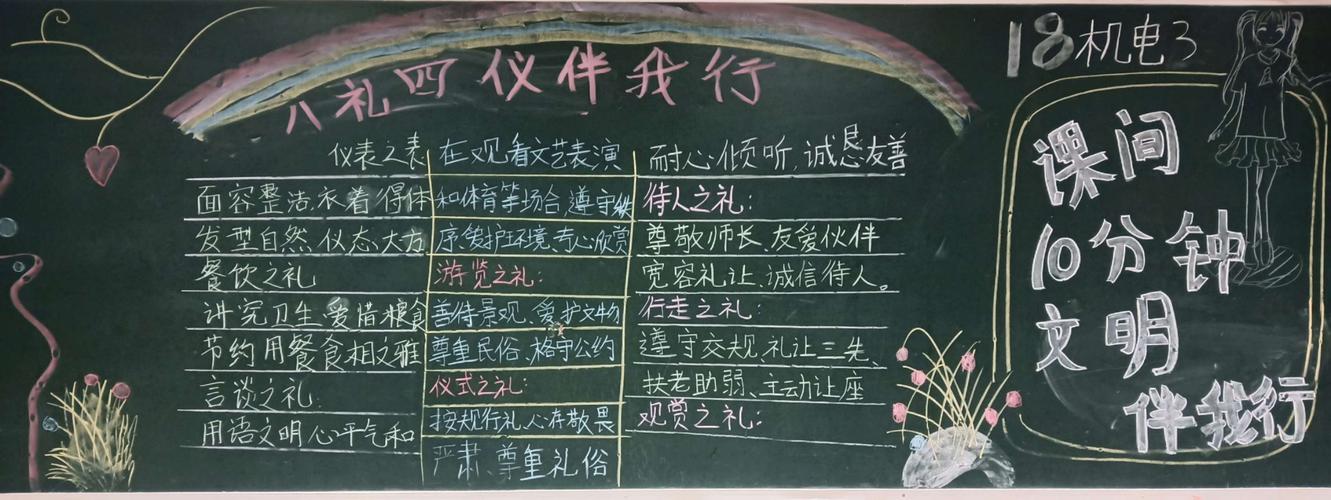 八礼四仪伴我行
仪表之表
面容整洁、衣着得体
发型自然、仪态大方
餐饮之礼
讲究卫生、爱惜粮食
节约用餐食相文雅
言谈之礼
用语文明心平气和
在观看文艺表演
和体育等场合,遵守秩
序爱护环境、专心欣赏
游览之礼:
善待景观、爱护文物
尊重民俗、格守公约
仪式之礼:
按规行礼、心存敬畏
严肃、尊重礼俗
耐心倾听,诚恳友善
待人之礼:
尊敬师长、友爱伙伴
宽容礼让、诚信待人。
行走之礼:
遵守交规,礼让三先、
扶老助弱、主动让座
观赏之礼:
18机电3
课间
10分钟
文明
伴我行